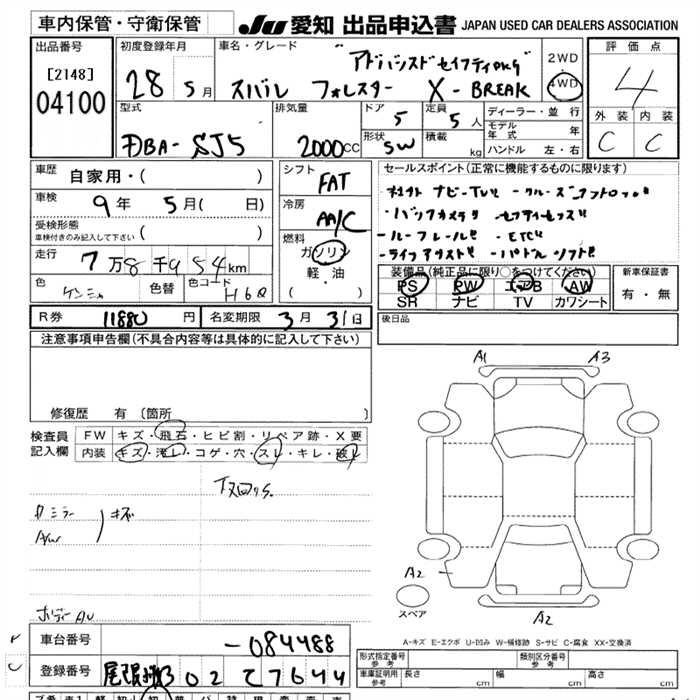 車内保管・守衛保管
JU 愛知 出品申込書 JAPAN USED CAR DEALERS ASSOCIATION
出品番号
[2148]
04100
初度登録年月
28 5月
車名・グレード
アドバンスドセイフティPKG
スバル フォレスター X-BREAK
2WD
4WD
評価点
4
外装 内装
C C
型式
DBA-SJ5
排気量
2000cc
ドア
5
形状
SW
定員
5人
積載
kg
ディーラー・並行
モデル年式 年
ハンドル 左・右
車歴
自家用・( )
車検
9年 5月( 日)
受検形態
車検付きのみ記入して下さい ( )
走行
7万8千954km
色
ケンシヤ
色替
色コード
H6Q
シフト
FAT
冷房
AA/C
燃料
ガソリン
軽・油
( ・ )
セールスポイント(正常に機能するものに限ります)
・バックカメラ
・ルーフレール ・ETC
・パドルシフト
装備品(純正品に限り○をつけてください)
PS PW エアB AW
SR ナビ TV カワシート
新車保証書
有・無
R券 11880円 名変期限 3月31日
後日品
注意事項申告欄(不具合内容等は具体的に記入して下さい)
修復歴 有(箇所 )
検査員記入欄
FW キズ・飛石・ヒビ割・リペア跡・X要
内装 キズ・汚レ・コゲ・穴・スレ・キレ・破レ
ミラー
A/W
キズ
ボディーAU
A1 A3
A2
A2
スペア
A-キズ E-エクボ U-凹み W-補修跡 S-サビ C-腐食 XX-交換済
車台番号 -084488
登録番号 尾張小牧 02 7644
形式指定番号 参考
類別区分番号 参考
車庫証明用 参考 長さ cm 幅 cm 高さ cm